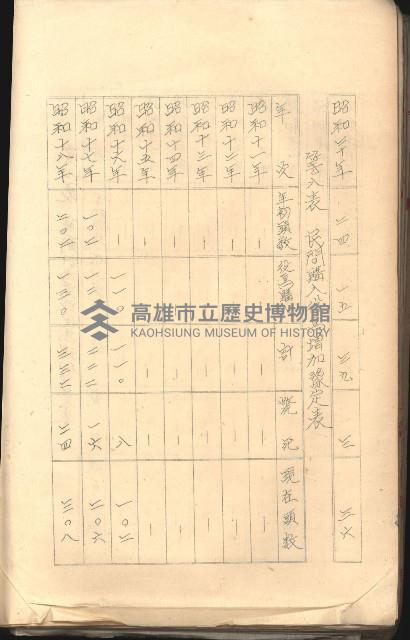 昭和二十年 二四 一五 三九 三 三六
第八表 民間購入役 增加豫定表
年次 年初頭數 役馬購 計 斃死 現在頭數
昭和十一年 — — — — —
昭和十二年 — — — — —
昭和十三年 — — — — —
昭和十四年 — — — — —
昭和十五年 — — — — —
昭和十六年 — 一一〇 一一〇 八 一〇二
昭和十七年 一〇二 一二〇 二二二 一六 二〇六
昭和十八年 二〇二 一三〇 三三二 二四 三〇八
高雄市立歷史博物館
KAOHSIUNG MUSEUM OF HISTORY